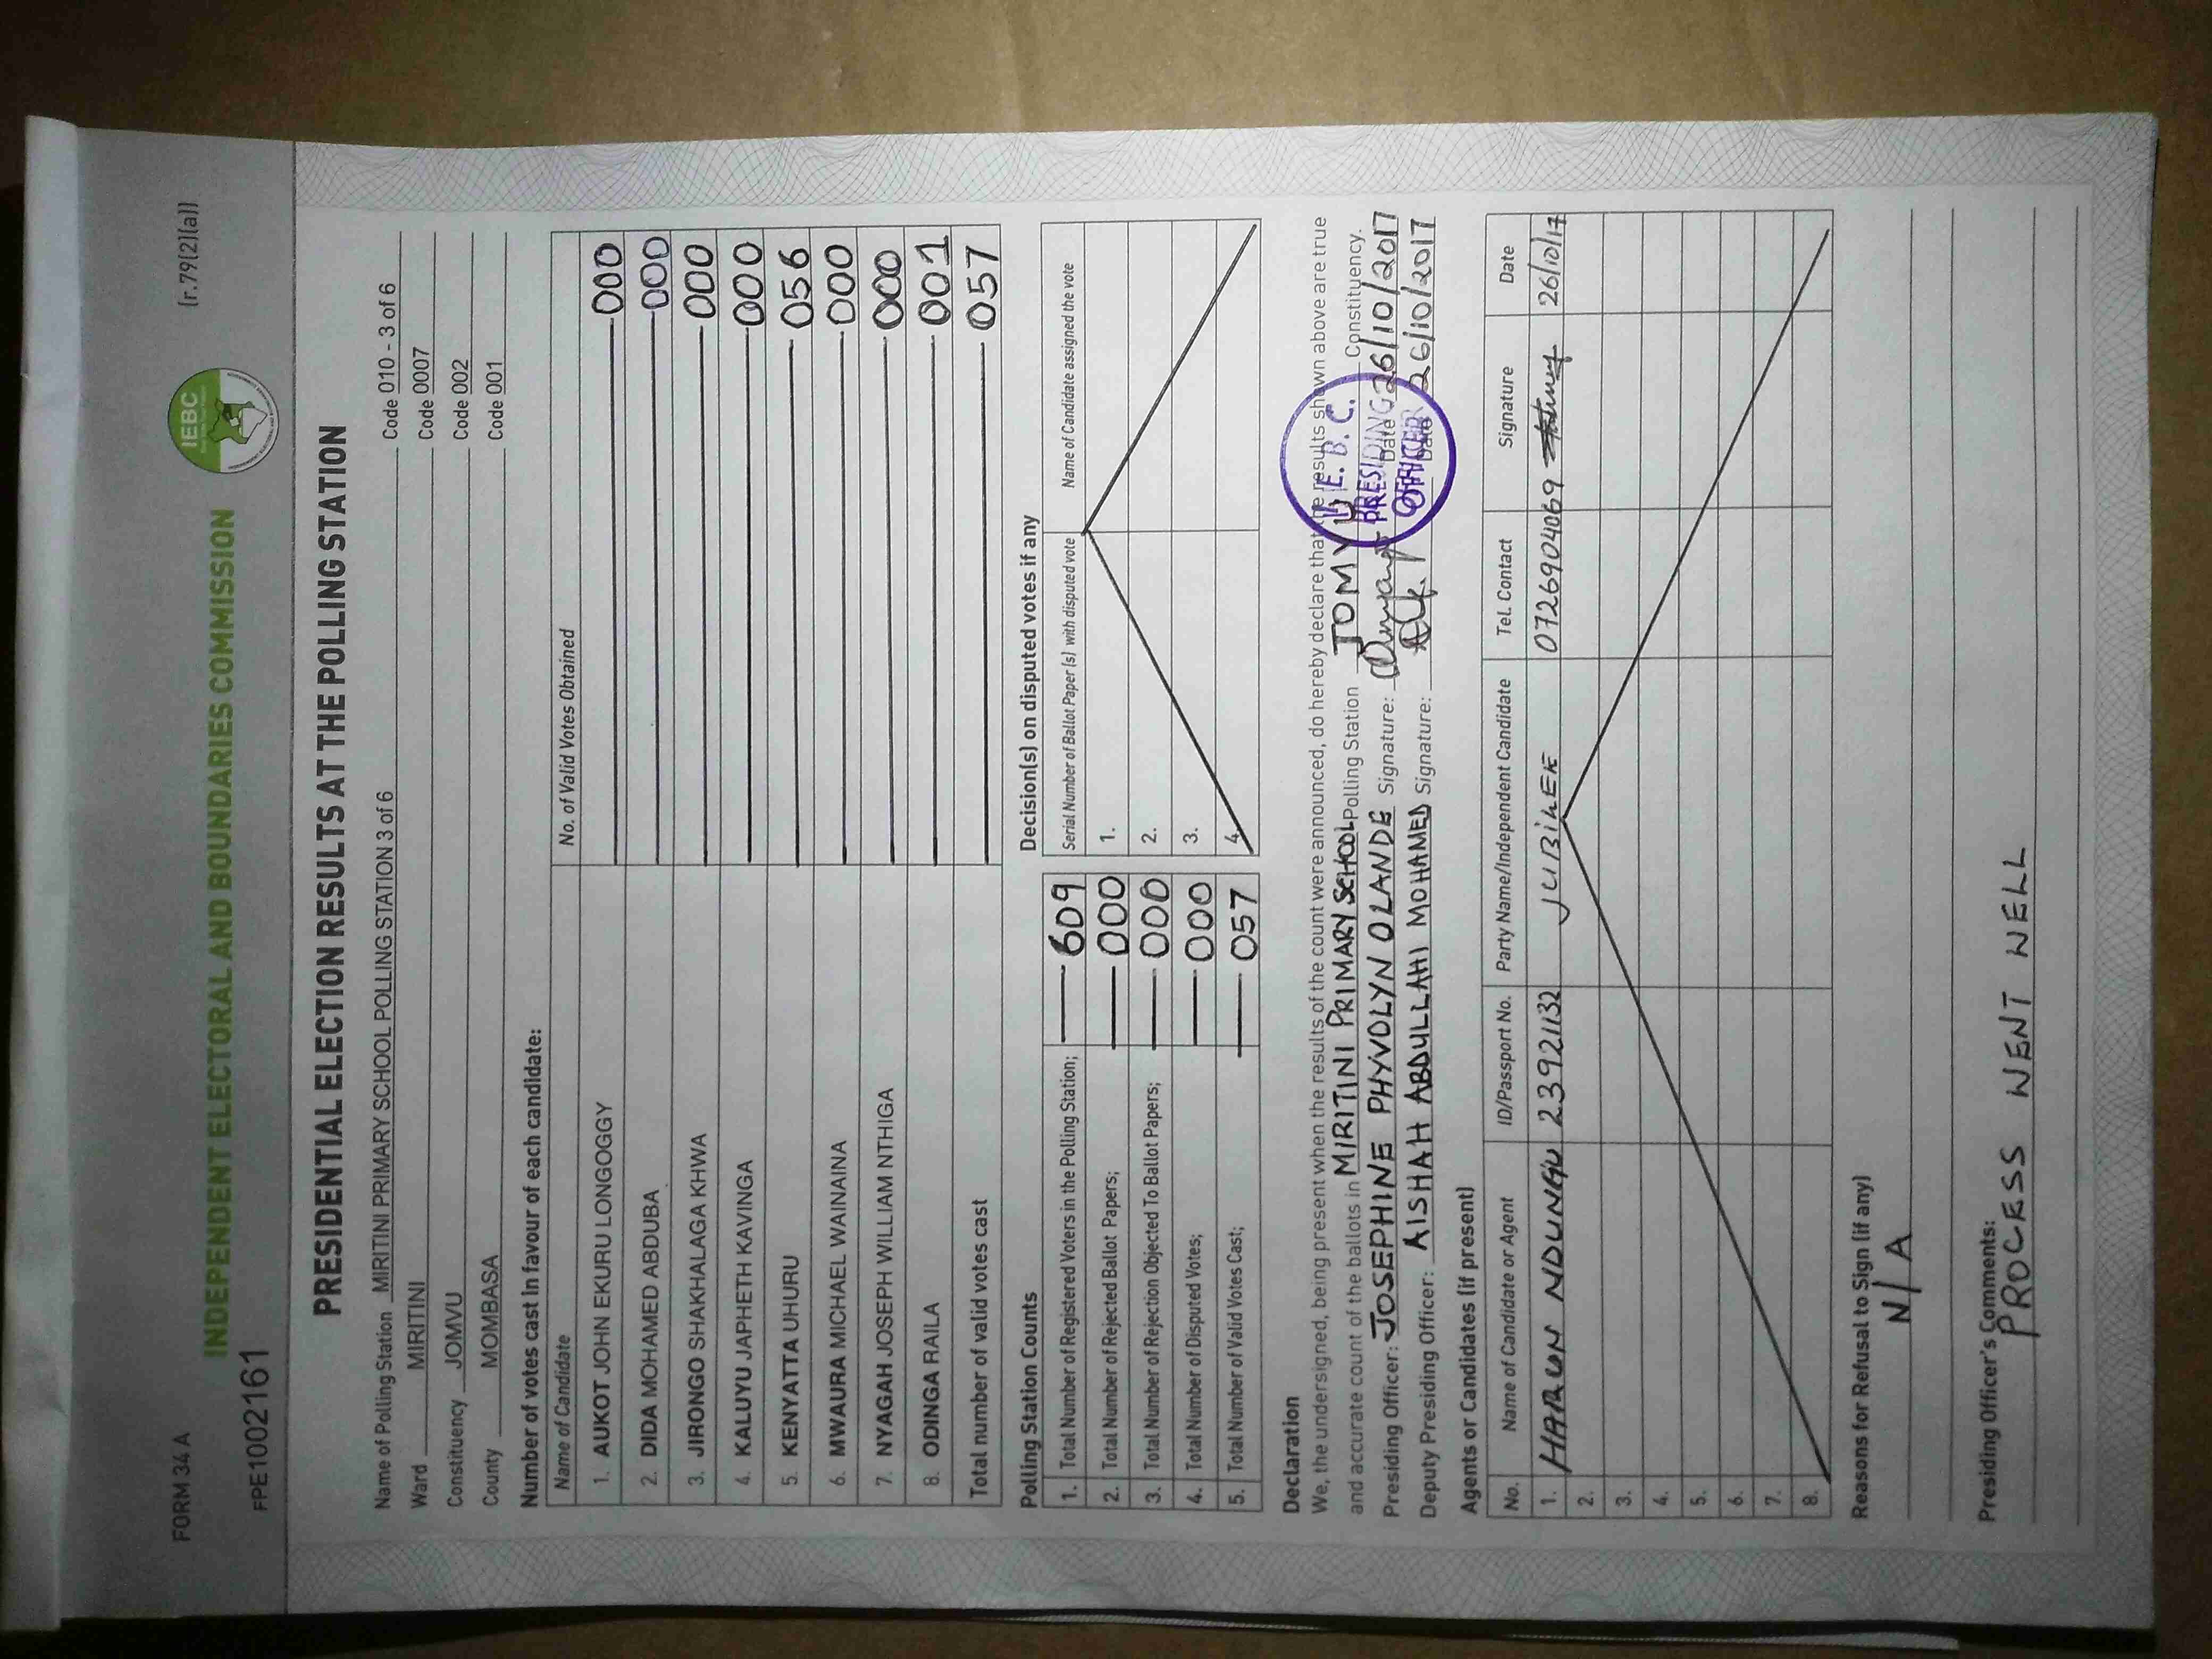 FORM 34 A
(r.79(2)(a))
IEBC
INDEPENDENT ELECTORAL AND BOUNDARIES COMMISSION
FPE1002161
PRESIDENTIAL ELECTION RESULTS AT THE POLLING STATION
Name of Polling Station MIRITINI PRIMARY SCHOOL POLLING STATION 3 of 6 Code 010 - 3 of 6
Ward MIRITINI Code 0007
Constituency JOMVU Code 002
County MOMBASA Code 001
Number of votes cast in favour of each candidate:
Name of Candidate No. of Valid Votes Obtained
1. AUKOT JOHN EKURU LONGOGGY 000
2. DIDA MOHAMED ABDUBA 000
3. JIRONGO SHAKHALAGA KHWA 000
4. KALUYU JAPHETH KAVINGA 000
5. KENYATTA UHURU 056
6. MWAURA MICHAEL WAINAINA 000
7. NYAGAH JOSEPH WILLIAM NTHIGA 000
8. ODINGA RAILA 001
Total number of valid votes cast 057
Polling Station Counts
1. Total Number of Registered Voters in the Polling Station; 609
2. Total Number of Rejected Ballot Papers; 000
3. Total Number of Rejection Objected To Ballot Papers; 000
4. Total Number of Disputed Votes; 000
5. Total Number of Valid Votes Cast; 057
Decision(s) on disputed votes if any
Serial Number of Ballot Paper (s) with disputed vote Name of Candidate assigned the vote
1.
2.
3.
4.
Declaration
We, the undersigned, being present when the results of the count were announced, do hereby declare that the results shown above are true
and accurate count of the ballots in MIRITINI PRIMARY SCHOOL Polling Station JOMVU Constituency.
Presiding Officer: JOSEPHINE PHYVOLYN OLANDE Signature: Date 26/10/2017
Deputy Presiding Officer: AISHAH ABDULLAHI MOHAMED Signature: Date 26/10/2017
I. E. B. C.
PRESIDING
OFFICER
Agents or Candidates (if present)
No. Name of Candidate or Agent ID/Passport No. Party Name/Independent Candidate Tel. Contact Signature Date
1. HARUN NDUNGU 23921132 JUBILEE 0726904069 26/10/17
2.
3.
4.
5.
6.
7.
8.
Reasons for Refusal to Sign (if any)
N/A
Presiding Officer's Comments:
PROCESS WENT WELL